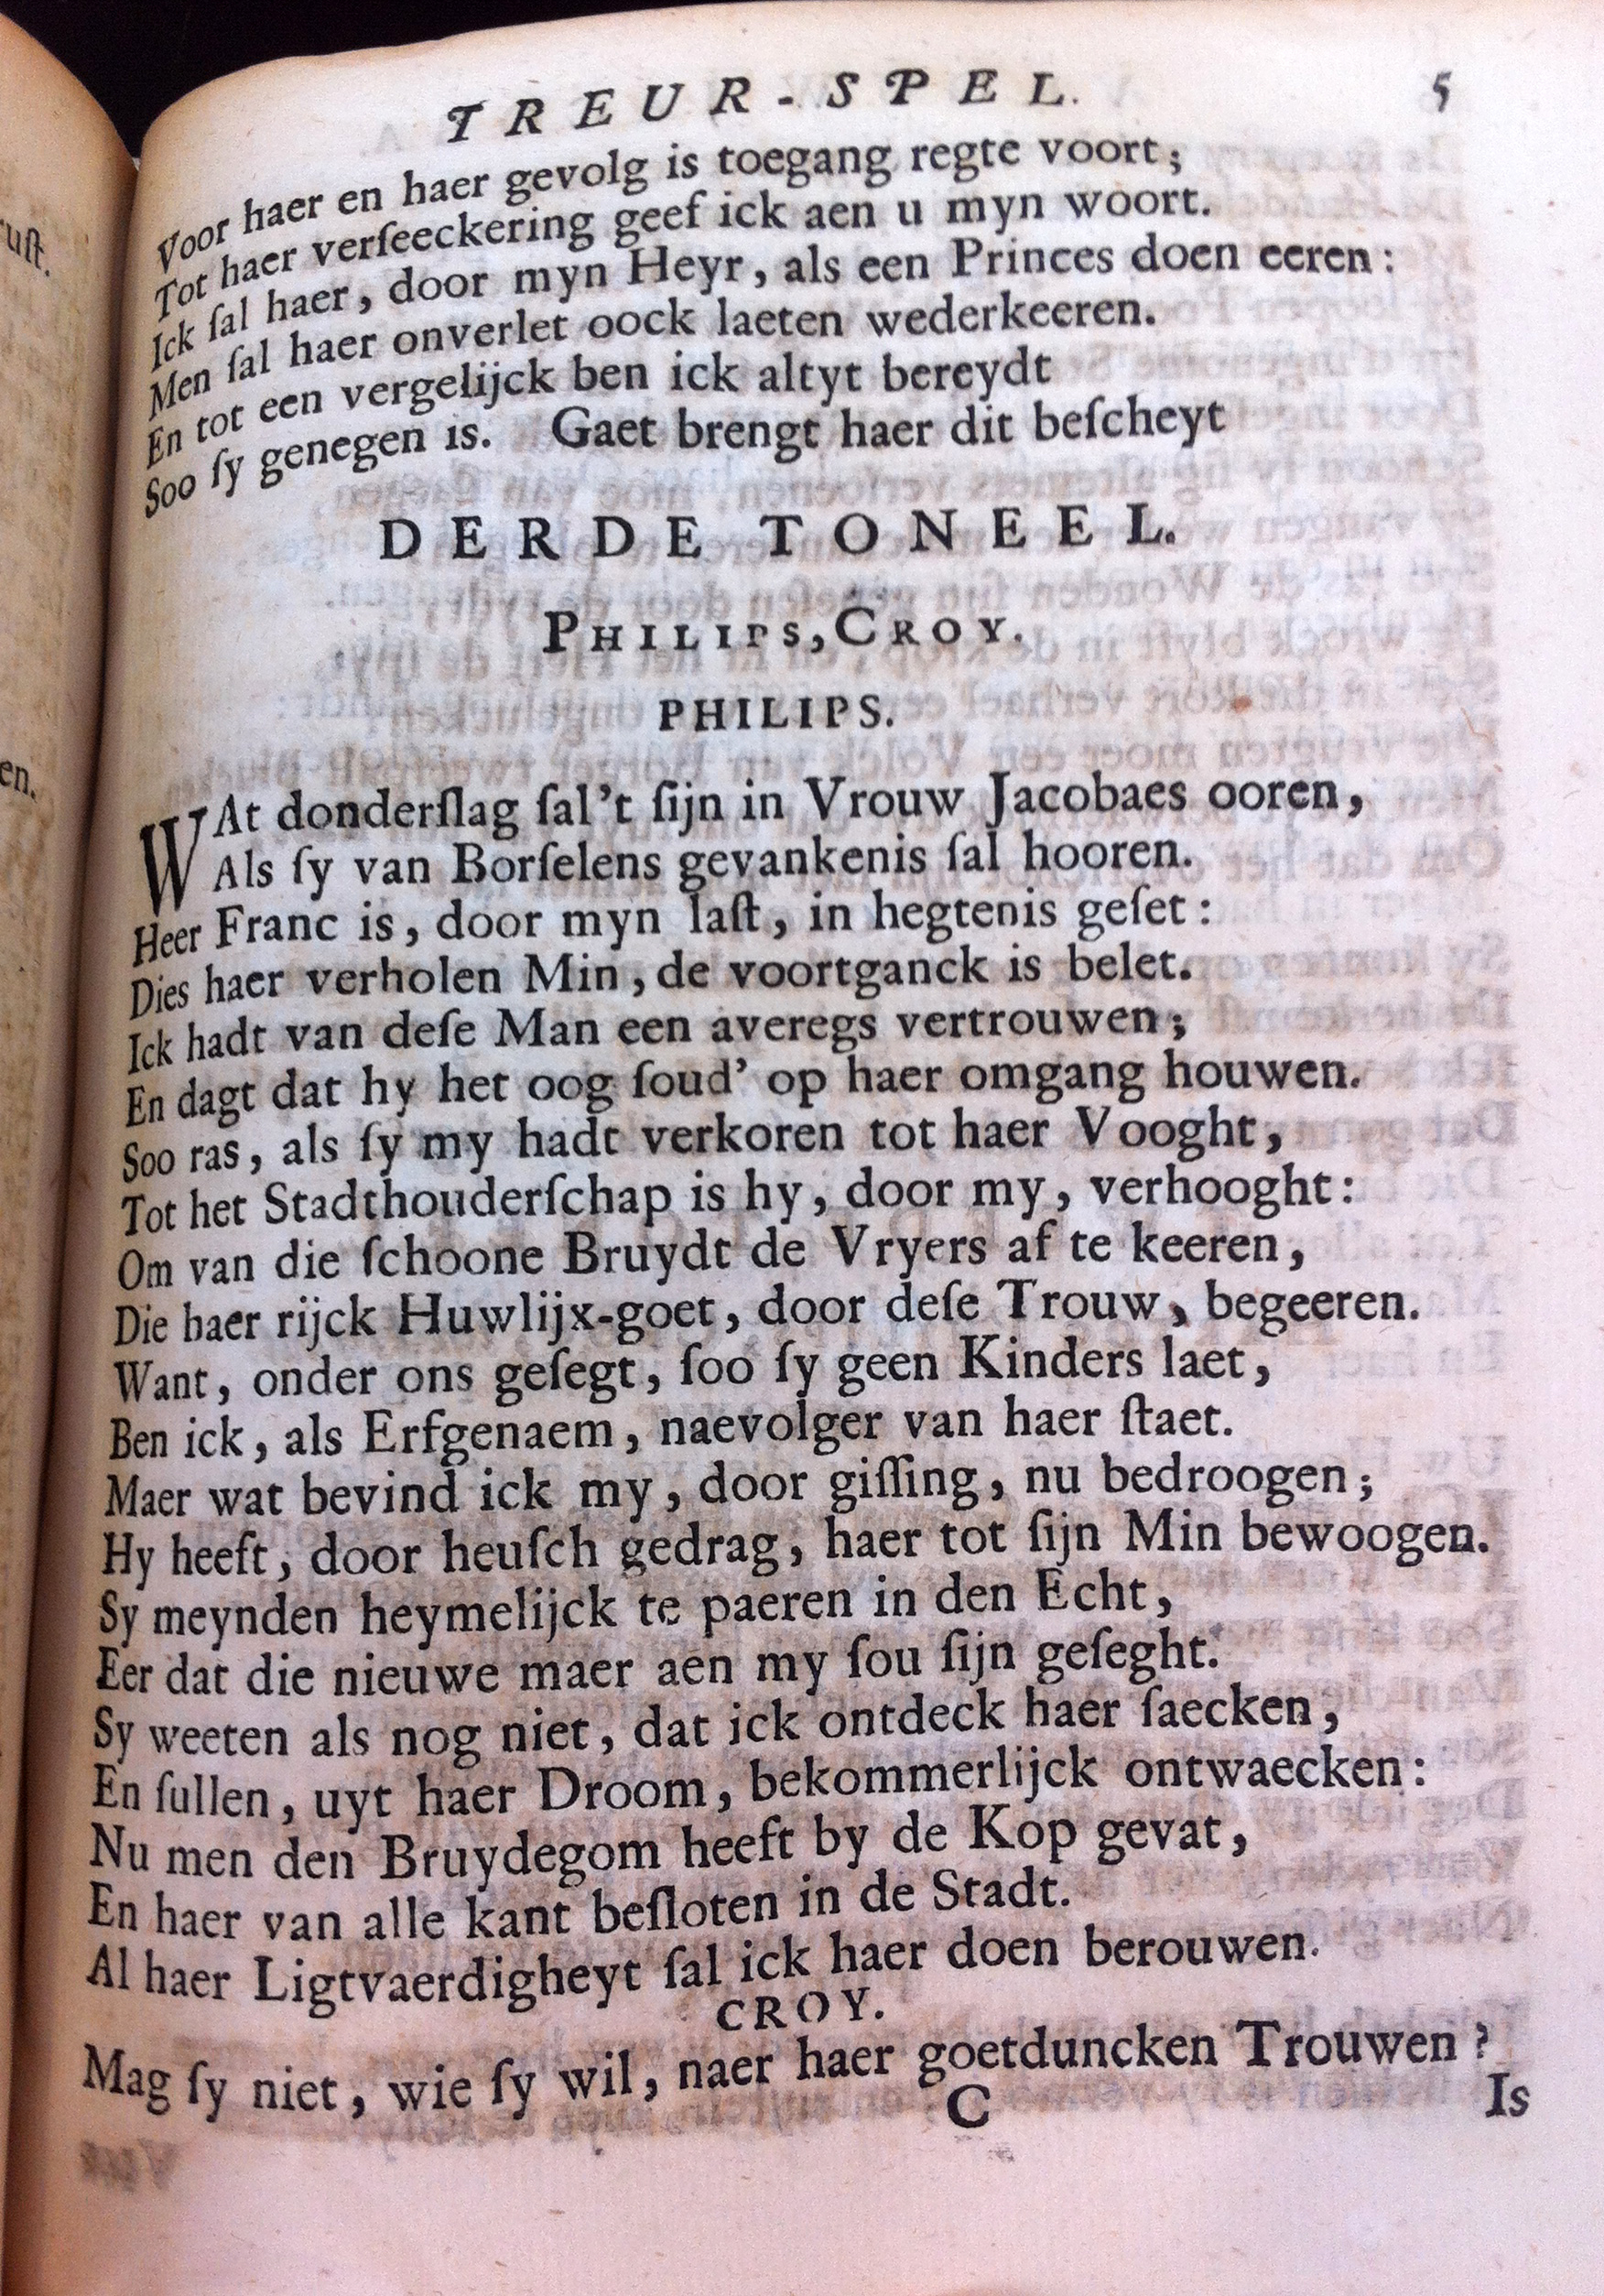 TREUR-SPEL. 5
Voor haer en haer gevolg is toegang regte voort;
Tot haer verſeeckering geef ick aen u myn woort.
Ick ſal haer, door myn Heyr, als een Princes doen eeren:
Men ſal haer onverlet oock laeten wederkeeren.
En tot een vergelijck ben ick altyt bereydt
Soo ſy genegen is. Gaet brengt haer dit beſcheyt
DERDE TONEEL.
PHILIPS, CROY.
PHILIPS.
WAt donderſlag ſal't ſijn in Vrouw Jacobaes ooren,
Als ſy van Borſelens gevankenis ſal hooren.
Heer Franc is, door myn laſt, in hegtenis geſet:
Dies haer verholen Min, de voortganck is belet.
Ick hadt van deſe Man een averegs vertrouwen;
En dagt dat hy het oog ſoud' op haer omgang houwen.
Soo ras, als ſy my hadt verkoren tot haer Vooght,
Tot het Stadthouderſchap is hy, door my, verhooght:
Om van die ſchoone Bruydt de Vryers af te keeren,
Die haer rijck Huwlijx-goet, door deſe Trouw, begeeren.
Want, onder ons geſegt, ſoo ſy geen Kinders laet,
Ben ick, als Erfgenaem, naevolger van haer ſtaet.
Maer wat bevind ick my, door giſſing, nu bedroogen;
Hy heeft, door heuſch gedrag, haer tot ſijn Min bewoogen.
Sy meynden heymelijck te paeren in den Echt,
Eer dat die nieuwe maer aen my ſou ſijn geſeght.
Sy weeten als nog niet, dat ick ontdeck haer ſaecken,
En ſullen, uyt haer Droom, bekommerlijck ontwaecken:
Nu men den Bruydegom heeft by de Kop gevat,
En haer van alle kant beſloten in de Stadt.
Al haer Ligtvaerdigheyt ſal ick haer doen berouwen.
CROY.
Mag ſy niet, wie ſy wil, naer haer goetduncken Trouwen?
C Is
uſt.
en.